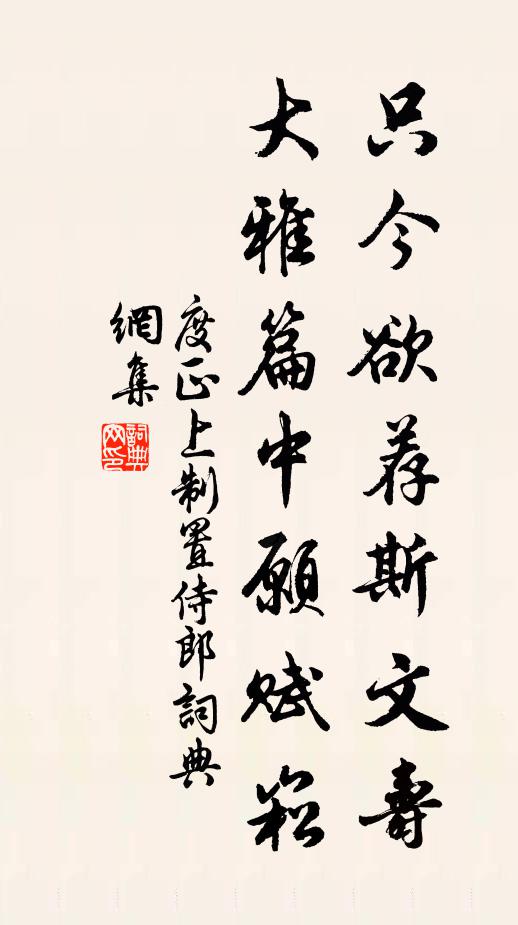 只今欲荐斯文壽
大雅篇中願賦崧
度正上制置侍郎詞典
網集
詞典網印